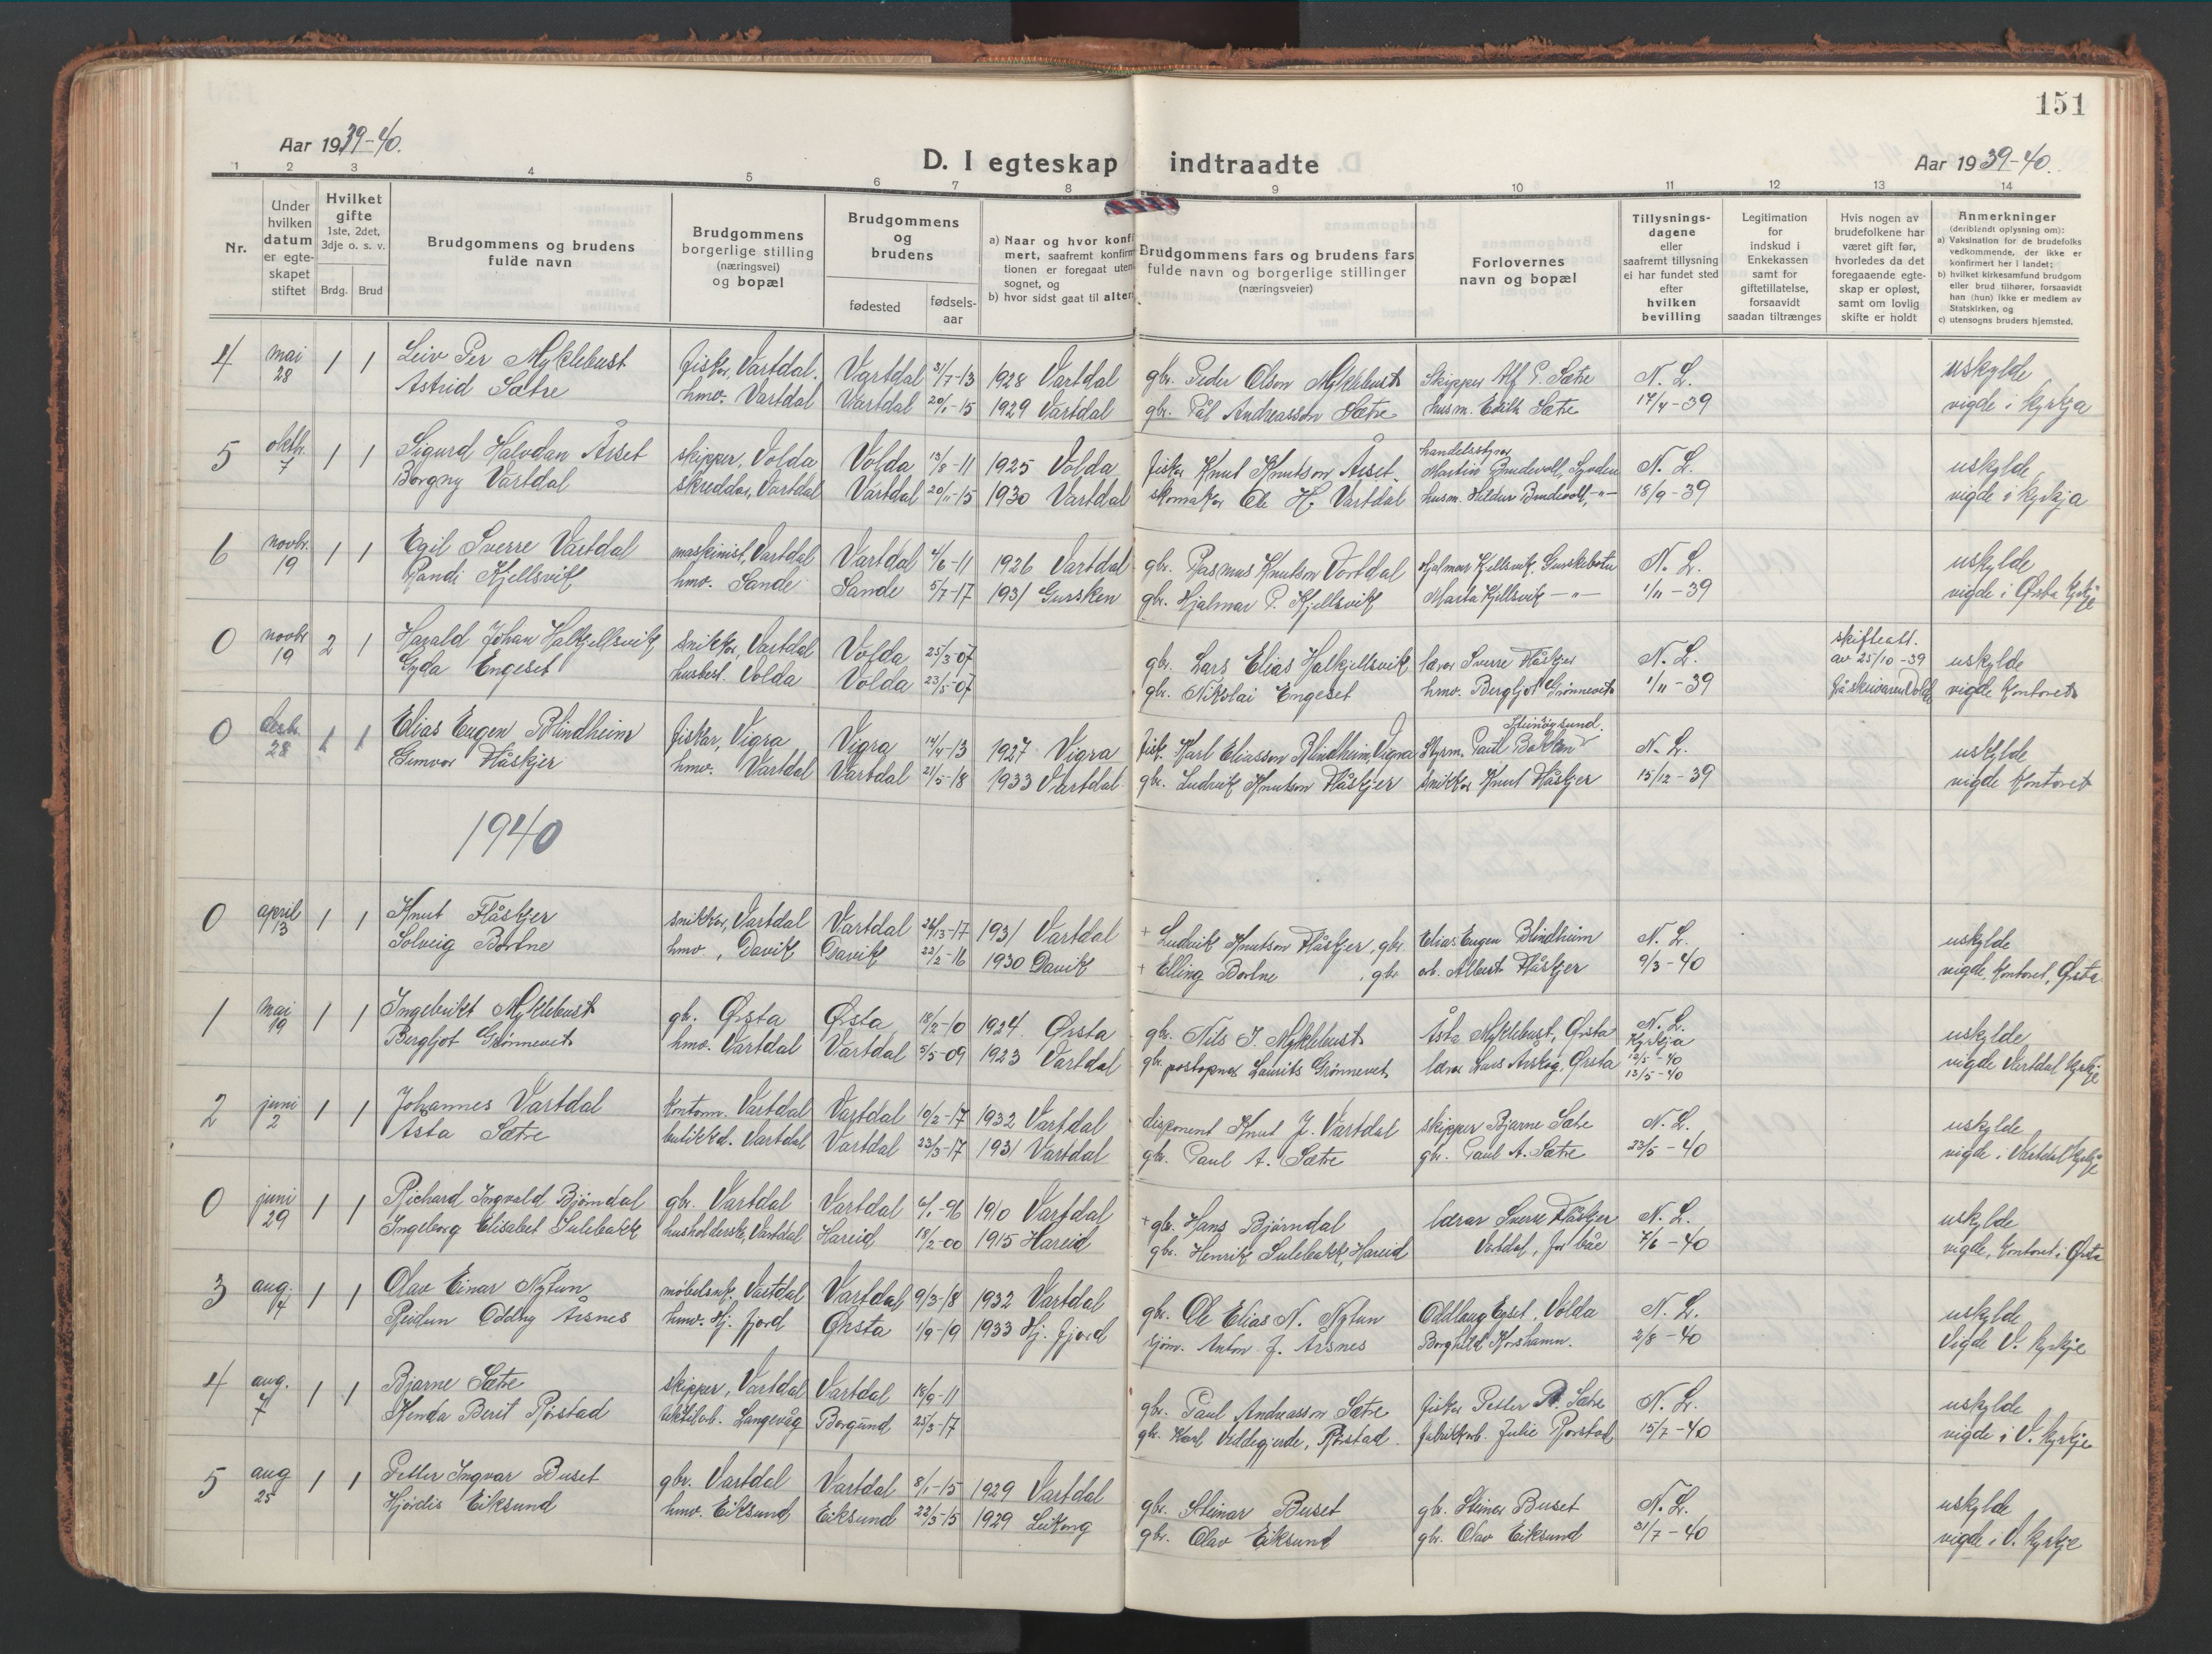 151
Aar 1939-40.
D. I egteskap indtraadte
Aar 1939-40.
1 2 3 4 5 6 7 8 9 10 11 12 13 14
Nr.
Under hvilken datum er egteskapet stiftet
Hvilket gifte 1ste, 2det, 3dje o. s. v.
Brdg. Brud
Brudgommens og brudens fulde navn
Brudgommens borgerlige stilling (næringsvei) og bopæl
Brudgommens og brudens
fødested fødsels-aar
a) Naar og hvor konfirmert, saafremt konfirmtionen er foregaat uten sognet, og
b) hvor sidst gaat til alters
Brudgommens fars og brudens fars fulde navn og borgerlige stillinger (næringsveier)
Forlovernes navn og bopæl
Tillysningsdagene eller saafremt tillysning ei har fundet sted efter hvilken bevilling
Legitimation for indskud i Enkekassen samt for giftetillatelse, forsaavidt saadan tiltrænges
Hvis nogen av brudefolkene har været gift før, hvorledes da det foregaaende egteskap er opløst, samt om lovlig skifte er holdt
Anmerkninger (deriblandt oplysning om):
a) Vaksination for de brudefolks vedkommende, der ikke er konfirmert her i landet;
b) hvilket kirkesamfund brudgom eller brud tilhører, forsaavidt han (hun) ikke er medlem av Statskirken, og
c) utensogns bruders hjemsted.
4 mai 28 1 1 Leiv Per Myklebust fiskar, Vartdal. Vartdal 31/7-13 1928 Vartdal gbr. Peder Olson Myklebust Skipper Alf P. Sætre N. L. uskylde
Astrid Sætre hmv. Vartdal Vartdal 20/1-15 1929 Vartdal gbr. Pål Andreasson Sætre husm. Edith Sætre 17/4-39 vigde i kyrkja
5 oktbr. 7 1 1 Sigurd Halvdan Årset skipper, Volda Volda 13/8-11 1925 Volda fiskar Knut Knutson Årset handelsstyrar Martin N. L. uskylde
Borgny Vartdal skreddar, Vartdal Vartdal 20/11-15 1930 Vartdal skomakar Ole H. Vartdal husm. Hildur -"- 18/9-39 vigde i kyrkja
6 novbr. 19 1 1 Egil Sverre Vartdal maskinist, Vartdal Vartdal 4/6-11 1926 Vartdal gbr. Rasmus Knutson Vartdal Hjalmar Kjellsvik, Gurskebotn N. L. uskylde
Randi Kjellsvik hmv. Sande Sande 5/7-17 1931 Gursken gbr. Hjalmar P. Kjellsvik Marta Kjellsvik -"- 1/11-39 vigde i Ørsta kyrkje
0 novbr 19 2 1 Harald Johan Halkjellsvik snikkar, Vartdal Volda 25/3-07 gbr. Lars Elias Halkjellsvik lærar Sverre Flåskjer N. L. skifteatt. av 25/10-39 uskylde
Gyda Engeset husbest. Volda Volda 23/5-07 gbr. Nikolai Engeset hmv. Bergljot Grønnevet 1/11-39 frå skrivaren i Volda vigde kontoret
0 desbr. 28 1 1 Elias Eugen Blindheim fiskar, Vigra Vigra 14/4-13 1927 Vigra fisk. Karl Eliasson Blindheim, Vigra Styrm. Paul N. L. uskylde
Gunvor Flåskjer hmv. Vartdal Vartdal 21/5-18 1933 Vartdal gbr. Ludvik Knutson Flåskjer snikkar Knut Flåskjer 15/12-39 vigde kontoret
1940
0 april 13 1 1 Knut Flåskjer snikkar, Vartdal Vartdal 1931 Vartdal + Ludvik Knutson Flåskjer, gbr. Elias Eugen Blindheim N. L. uskylde
Solveig Bortne hmv., Davik Davik 22/2-16 1930 Davik + Elling Bortne, gbr arb. Albert Flåskjer 9/3-40 vigde, kontoret, Ørsta
1 mai 19 1 1 Ingebrikt Myklebust gb. Ørsta Ørsta 18/2-10 1924 Ørsta gbr. Nils I. Myklebust Åsta Myklebust, Ørsta N. L. Kyrkja uskylde
Bergljot Grønnevet hmv. Vartdal Vartdal 5/5-09 1923 Vartdal gbr. postopnar Laurits Grønnevet lærar Lars Årskog, Ørsta 12/5-40 13/5-40 vigde Vartdal kyrkje
2 juni 2 1 1 Johannes Vartdal kontorm. Vartdal Vartdal 10/2-17 1932 Vartdal disponent Knut J. Vartdal skipper Bjarne Sætre N. L. uskylde
Asta Sætre butikkd. Vartdal Vartdal 23/3-17 1931 Vartdal gbr. Paul A. Sætre gbr. Paul A. Sætre 23/5-40 vigde i Vartdal kyrkje
0 juni 29 1 1 Richard Ingvald Bjørndal gbr. Vartdal Vartdal 6/1-96 1910 Vartdal + gbr. Hans Bjørndal lærar Sverre Flåskjer N. L. uskylde
Ingeborg Elisabet Sulebakk husholderske, Vartdal Hareid 18/2-00 1915 Hareid gbr. Henrik Sulebakk, Hareid Vartdal, for båe 7/6-40 vigde, kontoret i Ørsta
3 aug. 4 1 1 Olav Einar Nytun møbelsnk. Vartdal Vartdal 9/3-18 1932 Vartdal gbr. Ole Elias N. Nytun Oddlaug Egset, Volda N. L. uskylde
Reidun Oddny Årsnes hmv. Hj. fjord Ørsta 1/9-19 1933 Hj. fjord sjøm. Anton J. Årsnes Borghild Korshamn. 2/8-40 Vigde V. kyrkje
4 aug. 7 1 1 Bjarne Sætre skipper, Vartdal Vartdal 18/9-11 gbr. Paul Andreasson Sætre fiskar Petter P. Sætre N. L. uskylde
Kenda Berit Rørstad tekstilarb. Langevåg Borgund 25/3-17 gbr. Karl Veddegjerde, Rørstad fabrikkarb. Julie Rørstad 15/7-40 vigde i V. kyrkje
5 aug 25 1 1 Petter Ingvar Buset gbr. Vartdal Vartdal 8/1-15 1929 Vartdal gbr. Steinar Buset gb. Steinar Buset N. L. uskylde
Hjørdis Eiksund hmv. Eiksund Eiksund 22/3-15 1929 Leikong gbr. Olav Eiksund gbr. Olav Eiksund 31/7-40 vigde i V. kyrkje